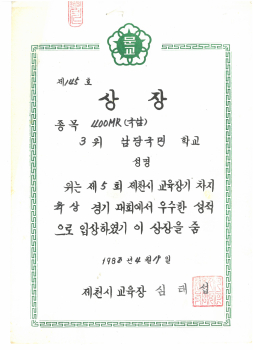 문교
제145호
상장
종목 400MR (국남)
3위 남당국민 학교
성명
위는 제5회 제천시 교육장기 차지
육상 경기 대회에서 우수한 성적
으로 입상하였기 이 상장을 줌
1988년 4월 19일
제천시 교육장 심태섭